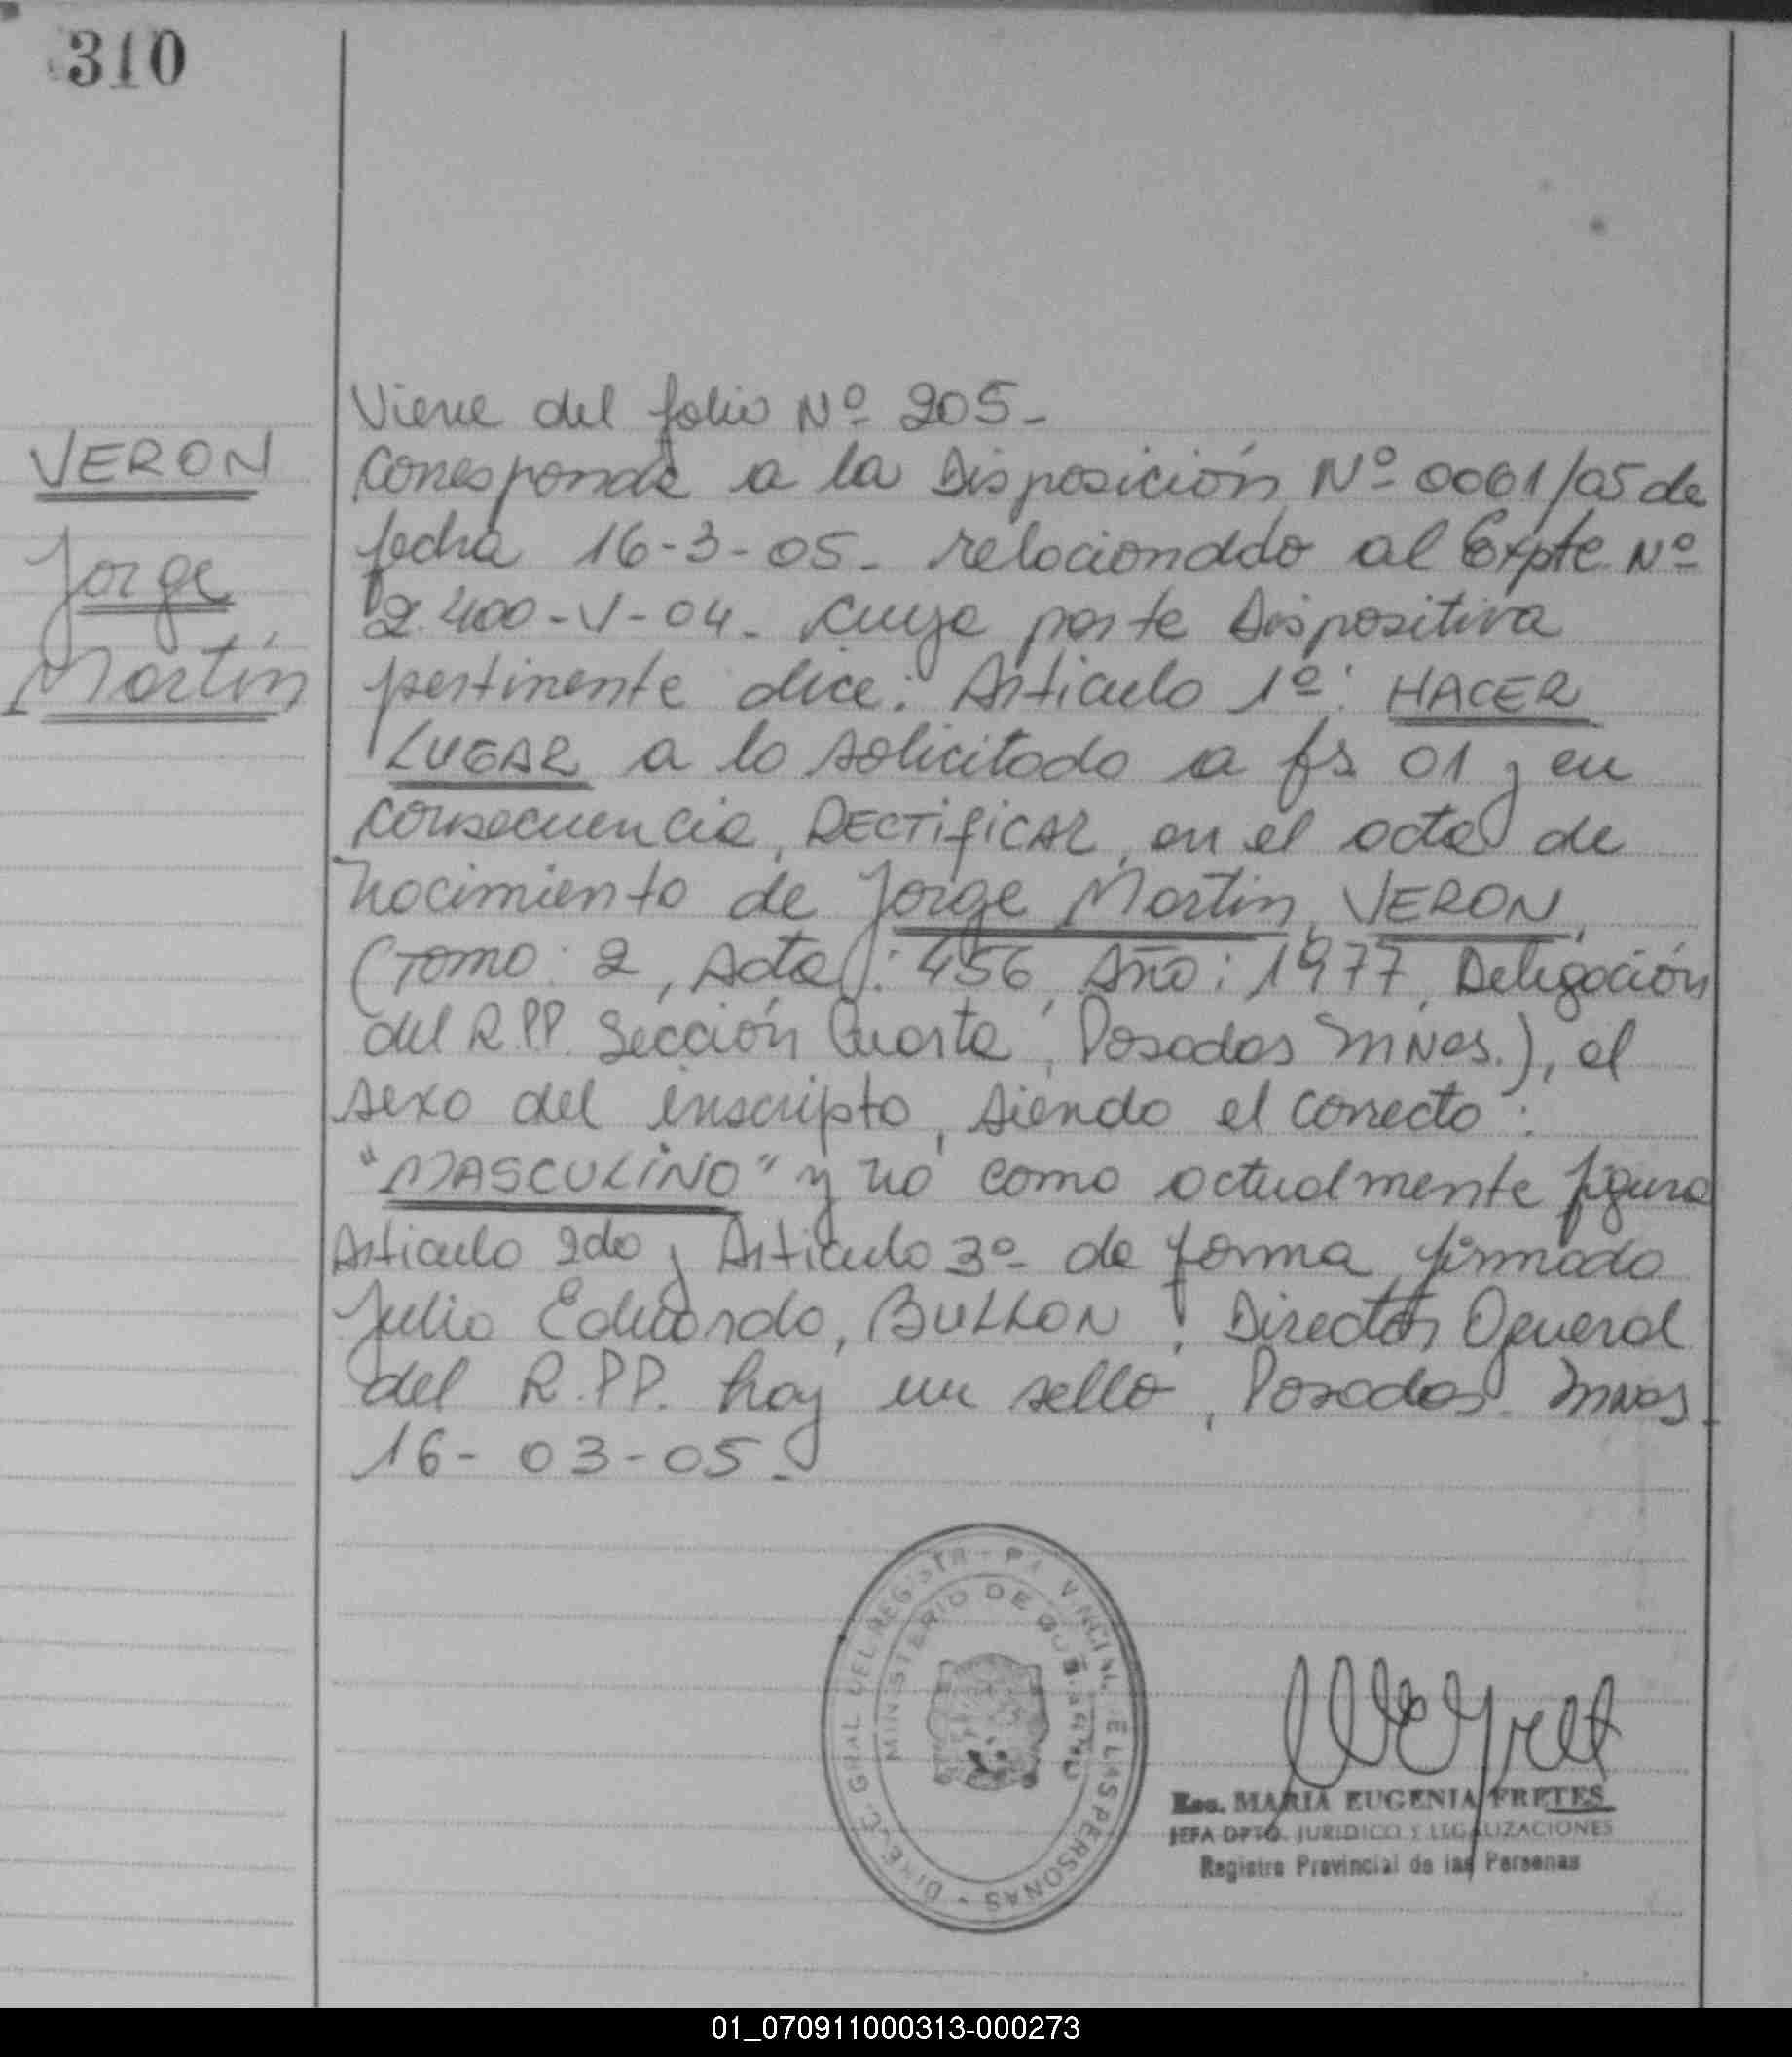 310
VERON
Jorge
Martín
Viene del folio Nº 205-
Corresponde a la Disposición Nº 0061/05 de
fecha 16-3-05- relacionado al Expte Nº
2.400-V-04- cuya parte Dispositiva
pertinente dice: Articulo 1º: HACER
LUGAR a lo solicitado a fs 01 y en
consecuencia, RECTIFICAR, en el acta de
nacimiento de Jorge Martin, VERON,
(Tomo: 2, Acta: 456, Año: 1977, Delegación
del R.P.P. Sección Cuarta, Posadas Mnes.), el
sexo del inscripto, siendo el correcto:
"MASCULINO" y no como actualmente figura
Articulo 2do y Articulo 3º de forma, firmado
Julio Eduardo, BULLON, Director General
del R.P.P. hay un sello, Posadas Mnes
16-03-05-
DIREC. GRAL DEL REGISTR- PROVINCIAL DE LAS PERSONAS -
MINISTERIO DE GOBIERNO
Esc. MARIA EUGENIA FRETES
JEFA DPTO. JURIDICO Y LEGALIZACIONES
Registro Provincial de las Personas
01_070911000313-000273